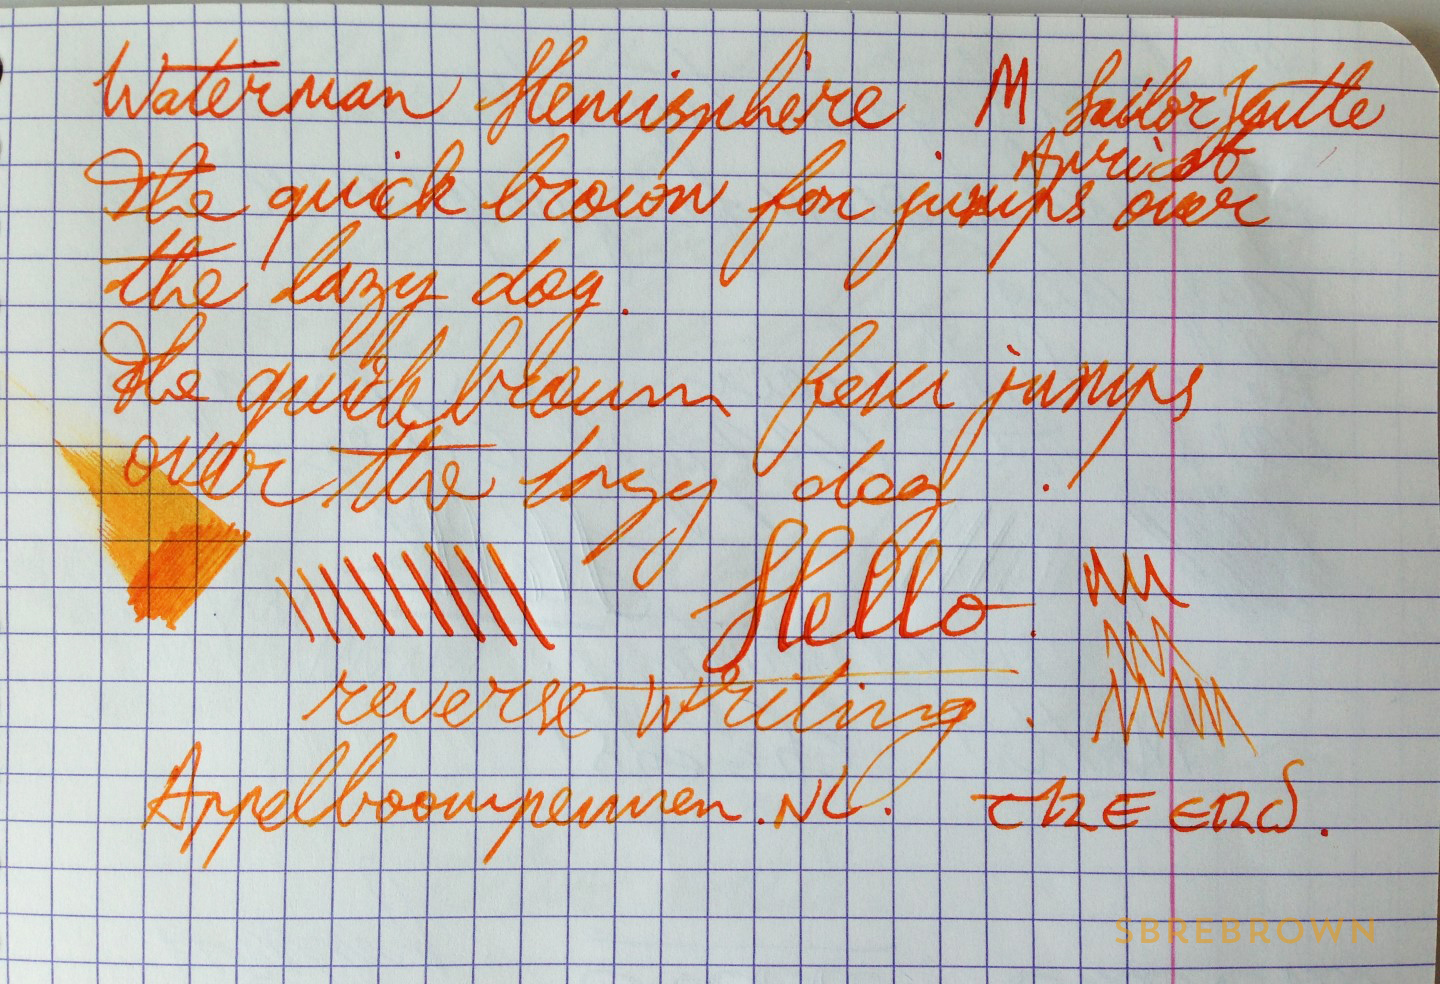 Waterman Hemisphère M Sailor Jentle
Apricot
The quick brown fox jumps over
the lazy dog.
The quick brown fox jumps
over the lazy dog.
Hello.
reverse writing.
Appelboompennen.NL. THE END.
SBREBROWN